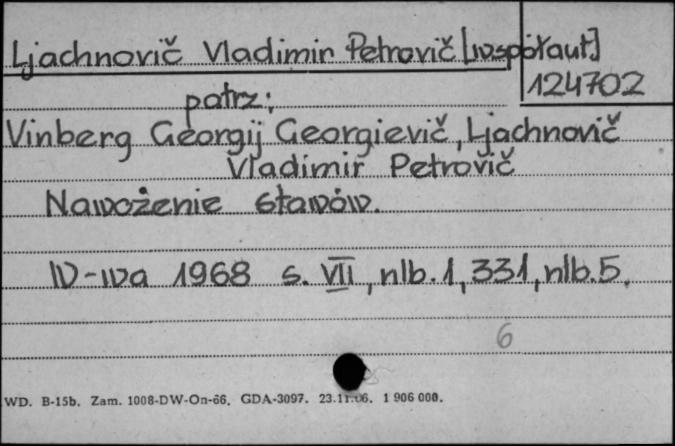 Ljachnovič Vladimir Petrovič [współaut]
124702
patrz:
Vinberg Georgij Georgievič, Ljachnovič
Vladimir Petrovič
Nawożenie stawów.
W-wa 1968 s. VII, nlb. 1, 331, nlb. 5.
6
WD. B-15b. Zam. 1008-DW-On-66. GDA-3097. 23.11.66. 1 906 000.